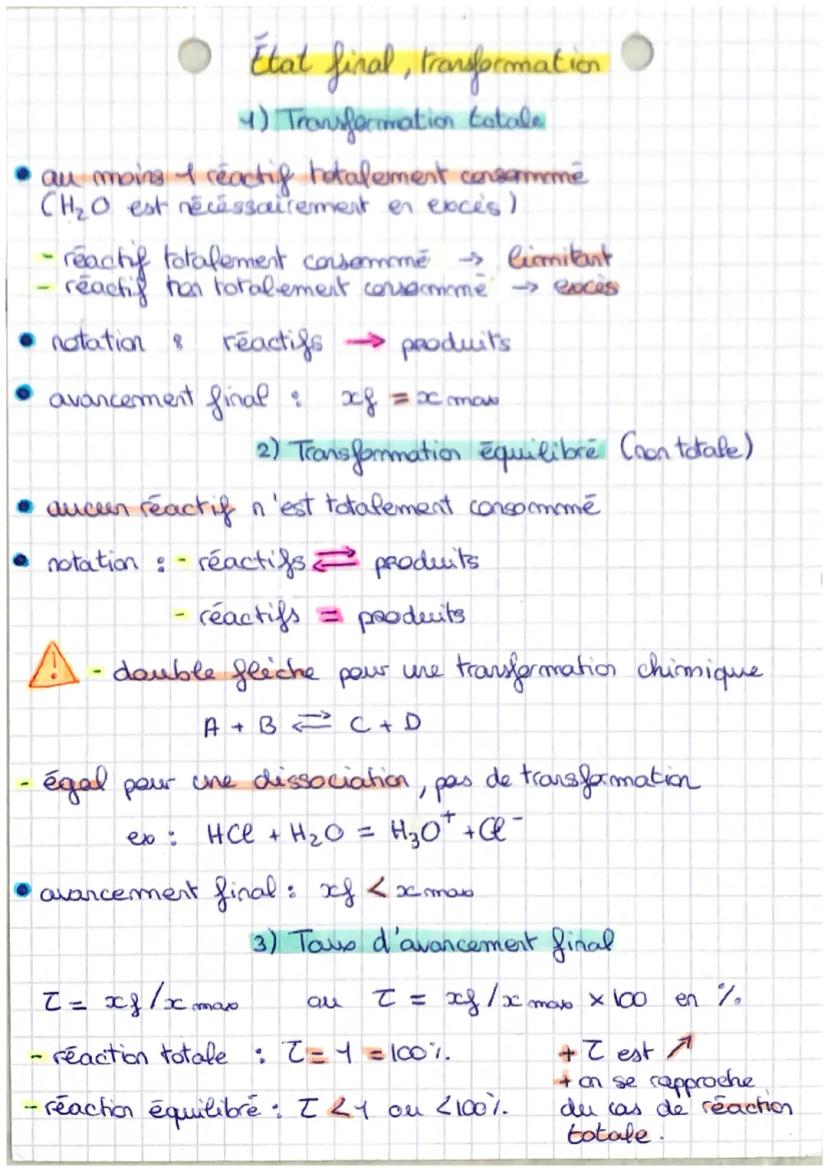 État final, transformation
1) Transformation totale
• au moins 1 réactif totalement consommé
(H₂O est nécéssairement en excès)
- réactif totalement consommé → limitant
- réactif non totalement consommé → excès
• notation : réactifs → produits
• avancement final : xf = x max
2) Transformation équilibré (non totale)
• aucun réactif n'est totalement consommé
• notation : - réactifs ⇄ produits
- réactifs = produits
⚠ - double flèche pour une transformation chimique
A + B ⇄ C + D
- égal pour une dissociation, pas de transformation
ex : HCl + H₂O = H₃O⁺ + Cl⁻
• avancement final : xf < x max
3) Taux d'avancement final
τ = xf / x max ou τ = xf / x max × 100 en %
- réaction totale : τ = 1 = 100%
+ τ est ↗
+ on se rapproche
- réaction équilibré : τ < 1 ou < 100%
du cas de réaction
totale.